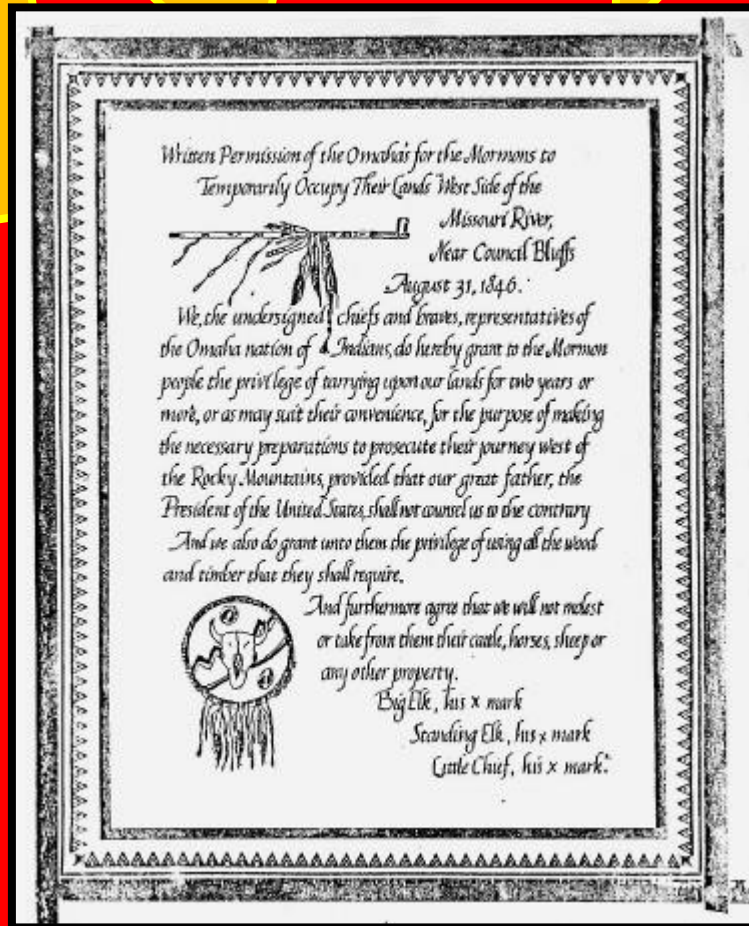 Written Permission of the Omaha's for the Mormons to
Temporarily Occupy Their Lands "West Side of the
Missouri River,
Near Council Bluffs
August 31, 1846.
We, the undersigned chiefs and braves, representatives of
the Omaha nation of Indians, do hereby grant to the Mormon
people the privilege of tarrying upon our lands for two years or
more, or as may suit their convenience, for the purpose of making
the necessary preparations to prosecute their journey west of
the Rocky Mountains, provided that our great father, the
President of the United States, shall not counsel us to the contrary
And we also do grant unto them the privilege of using all the wood
and timber that they shall require.
And furthermore agree that we will not molest
or take from them their cattle, horses, sheep or
any other property.
Big Elk, his x mark
Standing Elk, his x mark
Little Chief, his x mark."